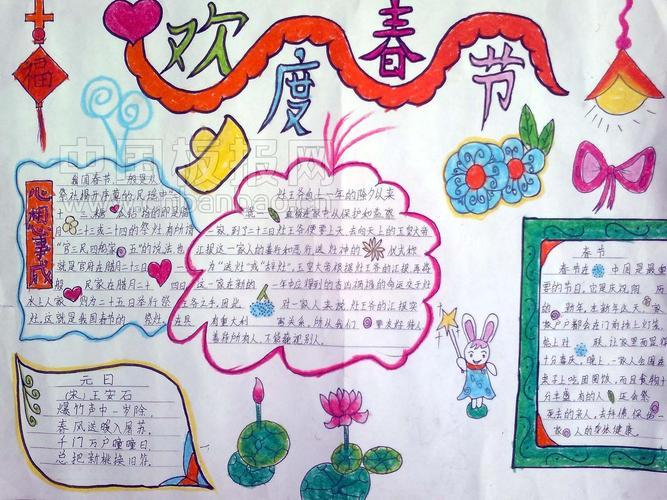 福
欢度春节
中国板报网
心想事成
我国春节,一般是从
祭灶揭开序幕的。民谣中"二
十三,糖瓜粘"指的即是腊
月二十三或二十四的祭灶,有所谓
"官三民四船家五"的说法,也
就是官府在腊月二十三日
水上人家则为二十五日举行祭
灶,这就是我国春节的祭灶。
灶王爷自上一年的除夕以来
就一直留在家中,以保护和监察
一家,到了二十三日灶王爷便要上天,去向天上的玉皇大帝
汇报这一家人的善行和恶行,送灶神的仪式称
为"送灶"或"辞灶"。玉皇大帝根据灶王爷的汇报,再将
这一家在新的一年中应得到的吉凶祸福的命运交于灶
王爷之手。因此,对一家人来说,灶王爷的汇报实
在具有重大利害关系,所以
春节
春节在中国是最重
要的节日,它是庆祝
的新年。在新年这天,家
家户户都会在门前挂上灯笼,
贴上对联,让家里显得
十分喜庆。晚上,一家人会围在
桌子上吃团圆饭,而且食物十
分丰盛。有的人还会祭
死去的亲人,去拜佛,保佑一
家人的身体健康。
元日
(宋)王安石
爆竹声中一岁除,
春风送暖入屠苏。
千门万户曈曈日,
总把新桃换旧符。